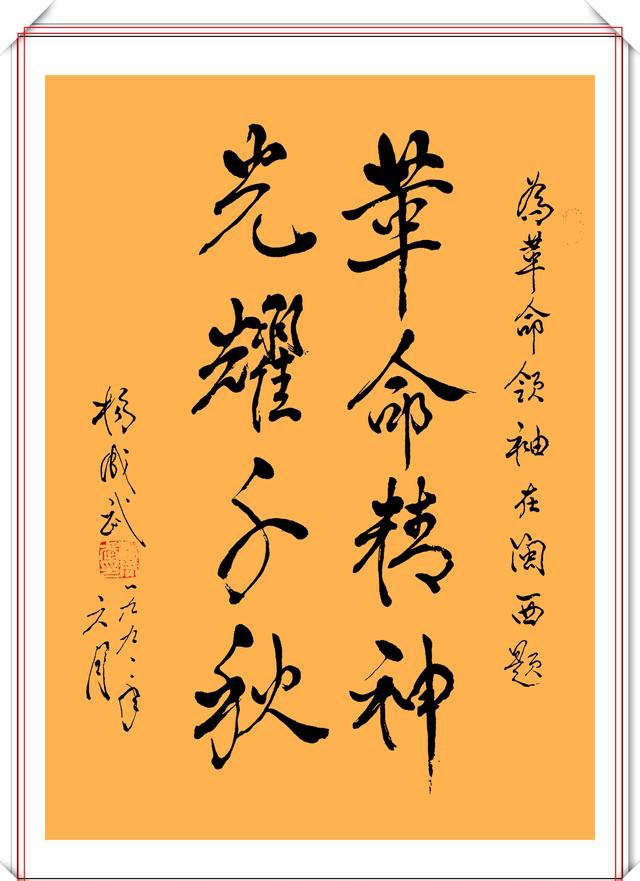 為革命领袖在闽西题
革命精神
光耀千秋
楊成武
一九九二年
六月